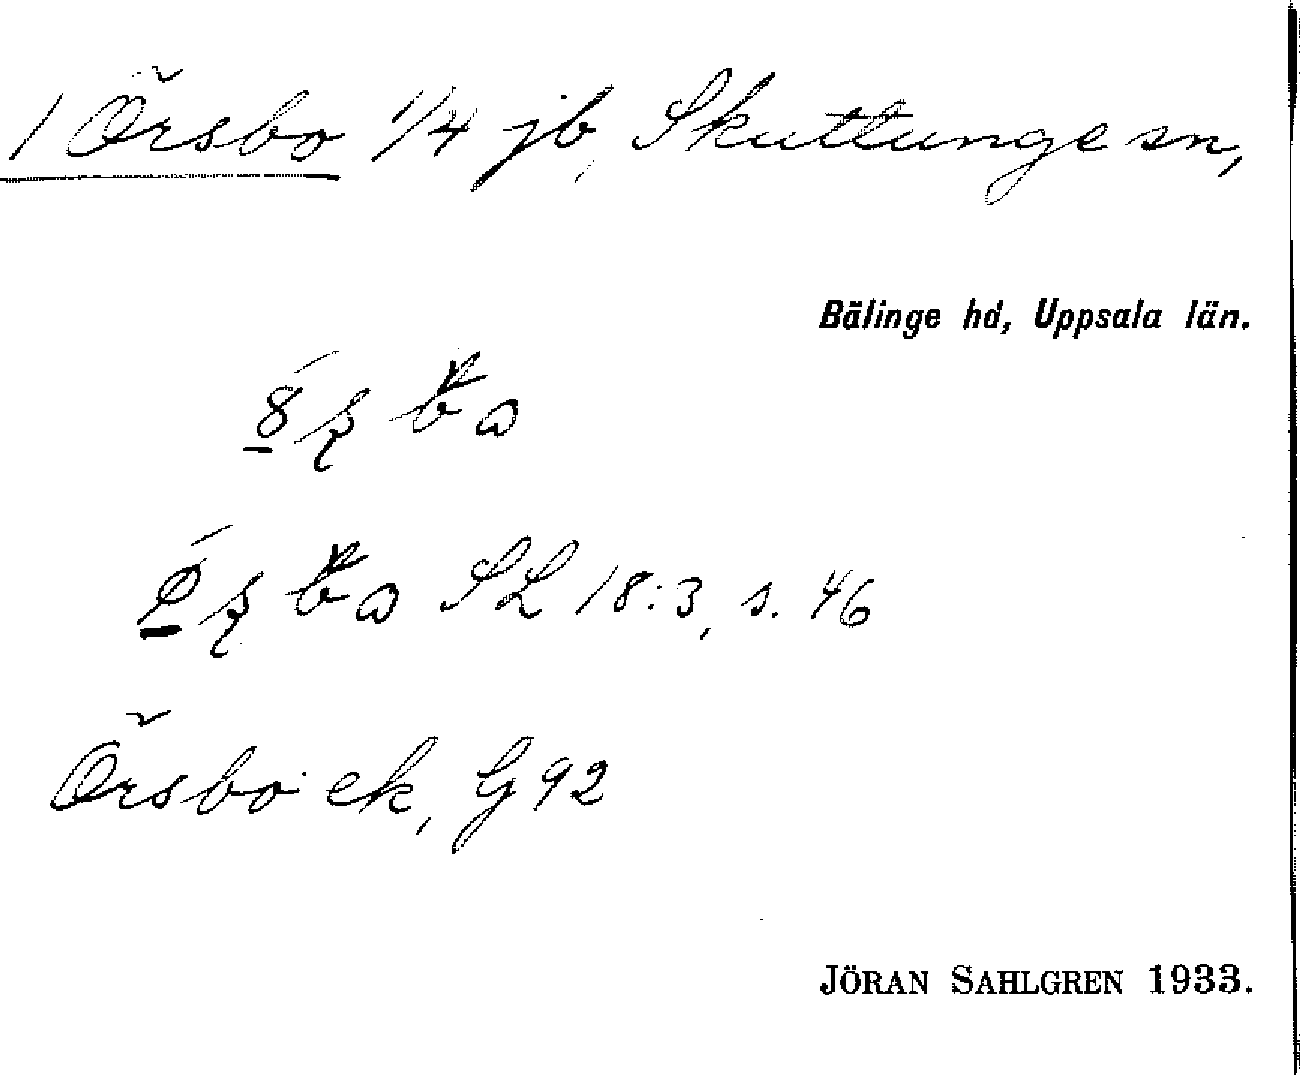 1 Örsbo 1/4 jb, Skuttunge sn,
Bälinge hd, Uppsala län.
SL 18:3, s. 46
Örsbo ek, G 92
JÖRAN SAHLGREN 1933.